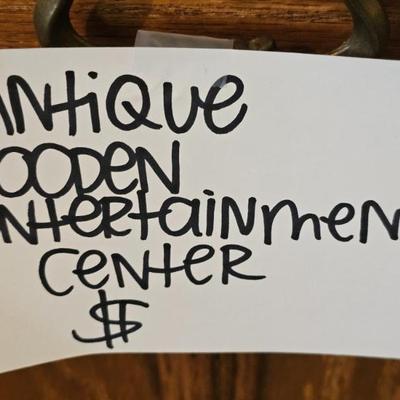 ANtiQUe
OODEN
NteRtaiNmeN
CeNteR
$